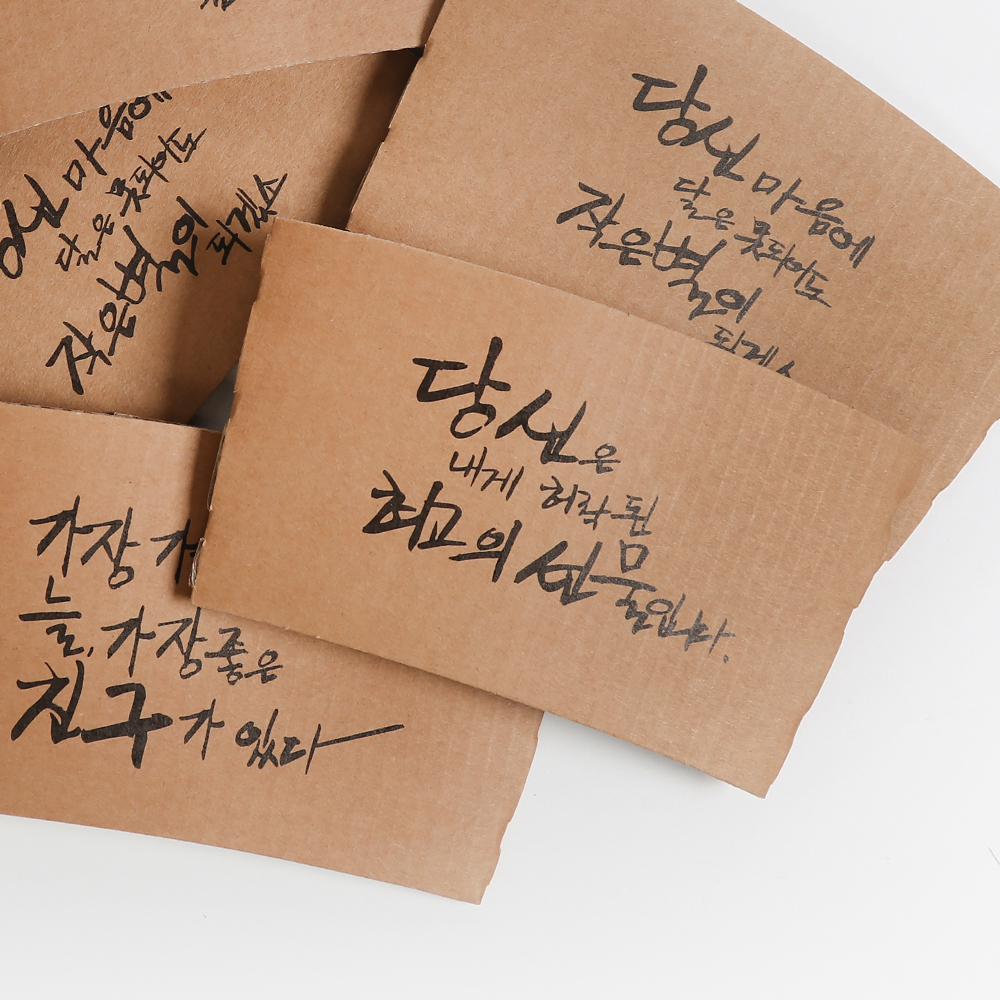 당신 마음에
달은 못되어도
작은별이
되겠소
당신 마음에
달은 못되어도
작은별이
되겠소
당신은
내게 허락된
최고의 선물입니다.
가장
늘, 가장좋은
친구가 있다